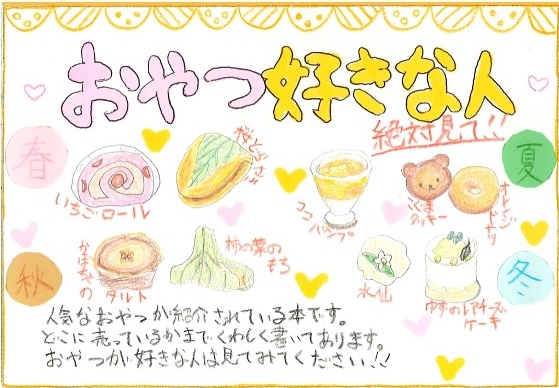 おやつ好きな人
絶対見て!!
春
夏
いちごロール
桜どらやき
ココパンプ
くまクッキー
オレンジドーナツ
秋
冬
かぼちゃのタルト
柿の葉のもち
水仙
ゆずのレアチーズケーキ
人気なおやつが紹介されている本です。
どこに売っているかまでくわしく書いてあります。
おやつが好きな人は見てみてください!!